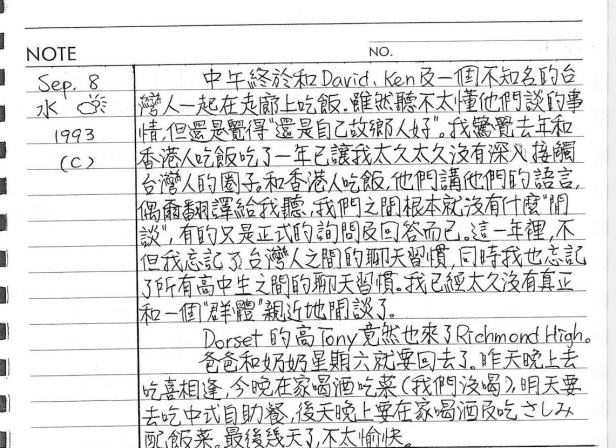 NOTE
NO.
Sep. 8
水
1993
(C)
中午終於和David、Ken及一個不知名的台
灣人一起在走廊上吃飯.雖然聽不太懂他們談的事
情,但還是覺得"還是自己故鄉人好"。我驚覺去年和
香港人吃飯吃了一年已讓我太久太久沒有深入接觸
台灣人的圈子。和香港人吃飯,他們講他們的語言,
偶爾翻譯給我聽,我們之間根本就沒有什麼"閒
談",有的只是正式的詢問及回答而已。這一年裡,不
但我忘記了台灣人之間的聊天習慣,同時我也忘記
了所有高中生之間的聊天習慣。我已經太久沒有真正
和一個"群體"親近地閒談了。
Dorset 的高Tony竟然也來了Richmond High。
爸爸和奶奶星期六就要回去了。昨天晚上去
吃喜相逢,今晚在家喝酒吃菜(我們沒喝),明天要
去吃中式自助餐,後天晚上要在家喝酒及吃さしみ
配飯菜。最後幾天了,不太愉快。